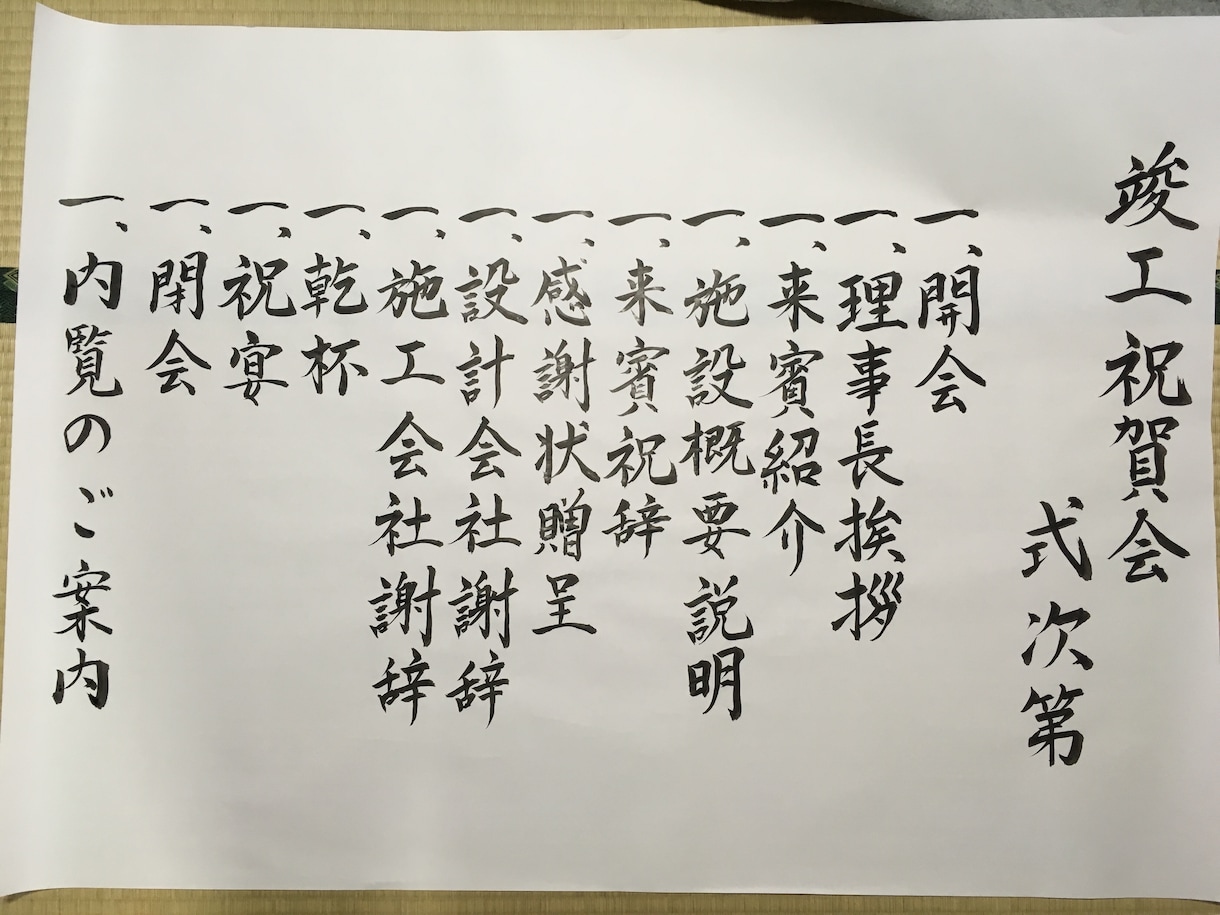 竣工祝賀会
式次第
一、開会
一、理事長挨拶
一、来賓紹介
一、施設概要説明
一、来賓祝辞
一、感謝状贈呈
一、設計会社謝辞
一、施工会社謝辞
一、乾杯
一、祝宴
一、閉会
一、内覧のご案内